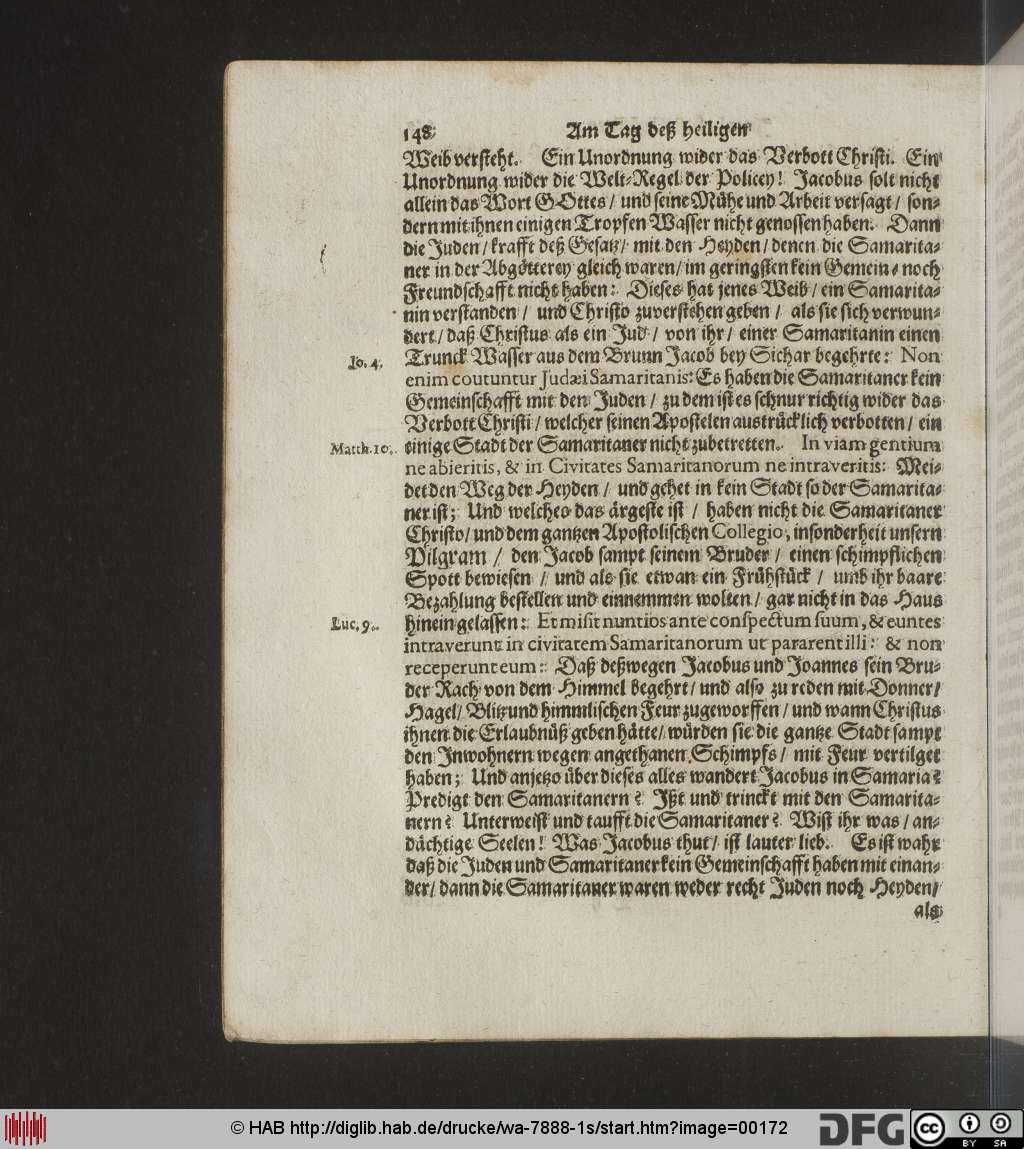 148 Am Tag deß heiligen
Weib versteht. Ein Unordnung wider das Verbott Christi. Ein
Unordnung wider die Welt-Regel der Policey! Jacobus solt nicht
allein das Wort GOttes / und seine Mühe und Arbeit versagt / son-
dern mit ihnen einigen Tropfen Wasser nicht genossen haben. Dann
die Juden / krafft deß Gesatz / mit den Heyden / denen die Samarita-
ner in der Abgötterey gleich waren / im geringsten kein Gemein- noch
Freundschafft nicht haben: Dieses hat jenes Weib / ein Samarita-
nin verstanden / und Christo zuverstehen geben / als sie sich verwun-
dert / daß Christus als ein Jud / von ihr / einer Samaritanin einen
Io. 4. Trunck Wasser aus dem Brunn Jacob bey Sichar begehrte: Non
enim coutuntur Judæi Samaritanis: Es haben die Samaritaner kein
Gemeinschafft mit den Juden / zu dem ist es schnur richtig wider das
Verbott Christi / welcher seinen Apostelen austrücklich verbotten / ein
Matth. 10. einige Stadt der Samaritaner nicht zubetretten. In viam gentium
ne abieritis, & in Civitates Samaritanorum ne intraveritis: Mei-
det den Weg der Heyden / und gehet in kein Stadt so der Samarita-
ner ist; Und welches das ärgeste ist / haben nicht die Samaritaner
Christo / und dem gantzen Apostolischen Collegio, insonderheit unsern
Pilgram / den Jacob sampt seinem Bruder / einen schimpflichen
Spott bewiesen / und als sie etwan ein Frühstück / umb ihr baare
Bezahlung bestellen und einnemmen wolten / gar nicht in das Haus
Luc. 9. hinein gelassen: Et misit nuntios ante conspectum suum, & euntes
intraverunt in civitatem Samaritanorum ut pararent illi: & non
receperunt eum: Daß deßwegen Jacobus und Joannes sein Bru-
der Rach von dem Himmel begehrt / und also zu reden mit Donner /
Hagel / Blitz und himmlischen Feur zugeworffen / und wann Christus
ihnen die Erlaubnüß geben hätte / würden sie die gantze Stadt sampt
den Inwohnern wegen angethanen Schimpfs / mit Feur vertilget
haben; Und anjetzo über dieses alles wandert Jacobus in Samaria?
Predigt den Samaritanern? Ißt und trinckt mit den Samarita-
nern? Unterweist und taufft die Samaritaner? Wist ihr was / an-
dächtige Seelen! Was Jacobus thut / ist lauter lieb. Es ist wahr
daß die Juden und Samaritaner kein Gemeinschafft haben mit einan-
der / dann die Samaritaner waren weder recht Juden noch Heyden /
als
© HAB http://diglib.hab.de/drucke/wa-7888-1s/start.htm?image=00172
DFG
cc BY SA